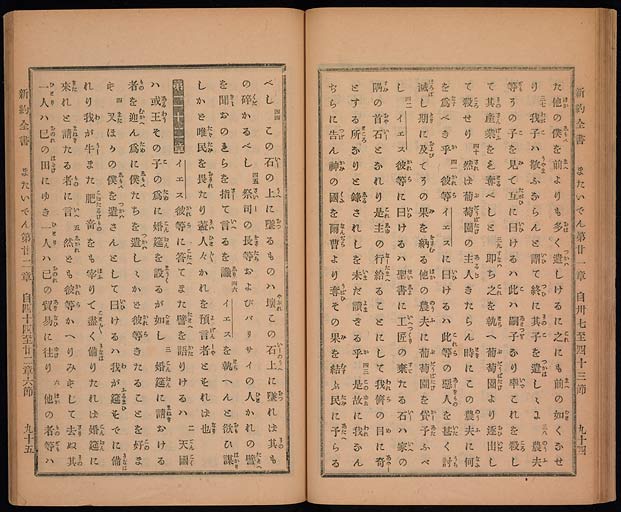 新約全書 またいでん第廿一章 自卅七至四十三節 九十四
た他の僕を前よりも多く遣しけるに之にも前の如くなせ
り 我子ハ敬ふならんと謂て終に其子を遣しゝに 農夫
等うの子を見て互に曰けるハ此ハ嗣子なり率これを殺し
て其産業をも奪べしと 即ち之を執へ葡萄園より逐出し
て殺せり 然ば葡萄園の主人きたらん時にこの農夫に何
を爲べき乎 彼等イエスに曰けるハ此等の惡人を甚く討
滅し期に及てその果を納る他の農夫に葡萄園を貸予ふべ
し イエス彼等に曰けるハ聖書に工匠の棄たる石ハ家の
隅の首石となれり是主の行給ることにして我儕の目に奇
とする所なりと録されしを未だ讀ざる乎 是故に我なん
ぢらに告ん神の國を爾曹より奪その果を結ぶ民に予らる
べし この石の上に墮るものハ壞この石上に墮れば其も
の碎かるべし 祭司の長等およびパリサイの人かれの譬
を聞おのれらを指て言るを識 イエスを執へんと欲ひ謀
しかど唯民を畏たり蓋人々かれを預言者とすれば也
第二十二章 イエス彼等に答てまた譬を語りけるハ 天國
ハ或王その子の爲に婚筵を設るが如し 婚筵に請おける
者を迎ん爲に僕たちを遣しゝかど彼等きたることを好ま
ず 又ほかの僕を遣さんとして曰けるハ我が筵すでに備
れり我が牛また肥畜をも宰りて盡く備りたれば婚筵に
來れと請たる者に言 然ども彼等かへりみずして去ぬ其
一人ハ己の田にゆき一人ハ己の貿易に往り 他の者等ハ
新約全書 またいでん第廿二章 自四十四至廿二章六節 九十五